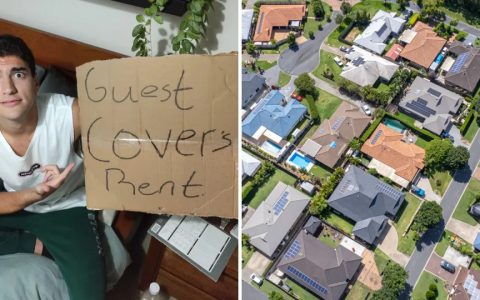 Guest
Cover's
Rent